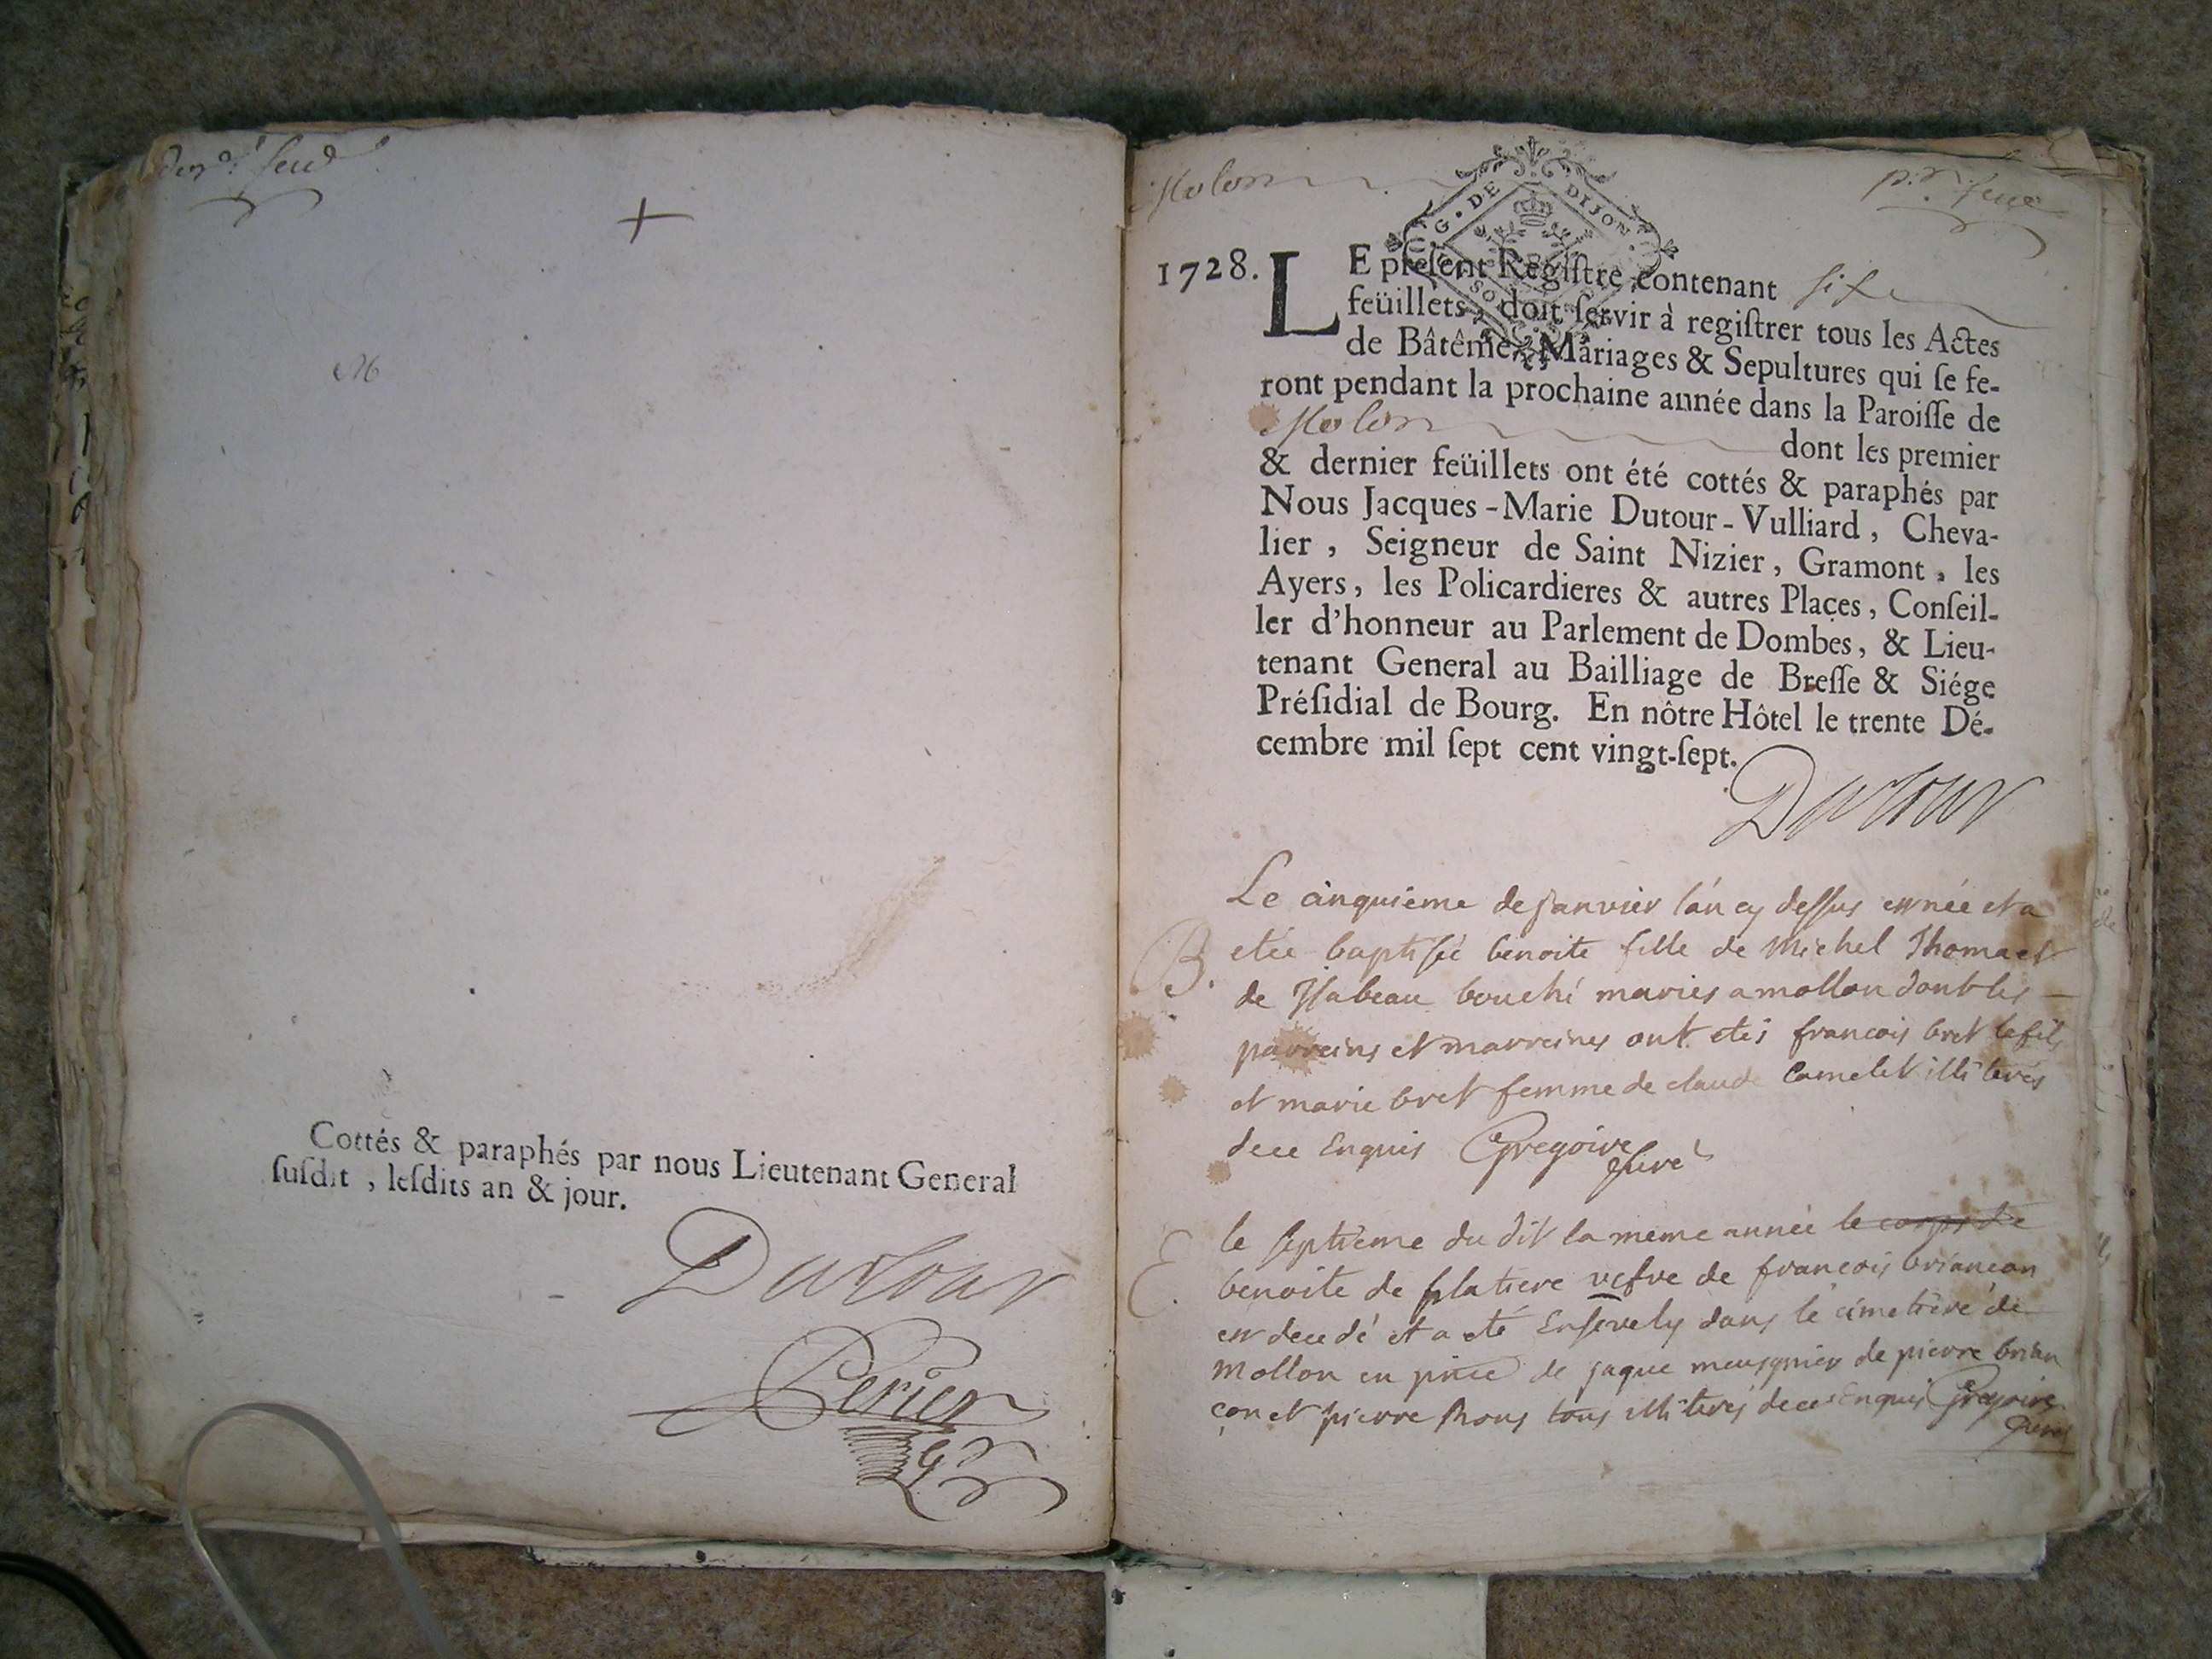 +
Cottés & paraphés par nous Lieutenant General
ſuſdit, leſdits an & jour.
Dutour
Perier
Molon
G. DE DIJON
1728.
LE preſent Regiſtre contenant ſix
feüillets, doit ſervir à regiſtrer tous les Actes
de Bâtême, Mariages & Sepultures qui ſe fe-
ront pendant la prochaine année dans la Paroiſſe de
Molon dont les premier
& dernier feüillets ont été cottés & paraphés par
Nous Jacques-Marie Dutour-Vulliard, Cheva-
lier, Seigneur de Saint Nizier, Gramont, les
Ayers, les Policardieres & autres Places, Conſeil-
ler d'honneur au Parlement de Dombes, & Lieu-
tenant General au Bailliage de Breſſe & Siége
Préſidial de Bourg. En nôtre Hôtel le trente Dé-
cembre mil ſept cent vingt-ſept.
Dutour
Le cinquiéme de janvier l'an cy dessus est née et a
B. eteé baptisée benoite fille de Michel Thoma et
de Isabeau bouché mariés a mollon dont les
parreins et marreines ont etés francois bret le fils
et marie bret femme de claude Camelet illiterés
de ce Enquis Gregoire
Curé
le septiéme du dit la meme année le corps de
E. benoite de platiere vefve de francois briancon
est decedé et a eté Ensevely dans le cimetiére de
Mollon en pnce de jaque meusgnier de pierre brian
çon et pierre Rous tous illiterés de ce Enquis Gregoire
Curé